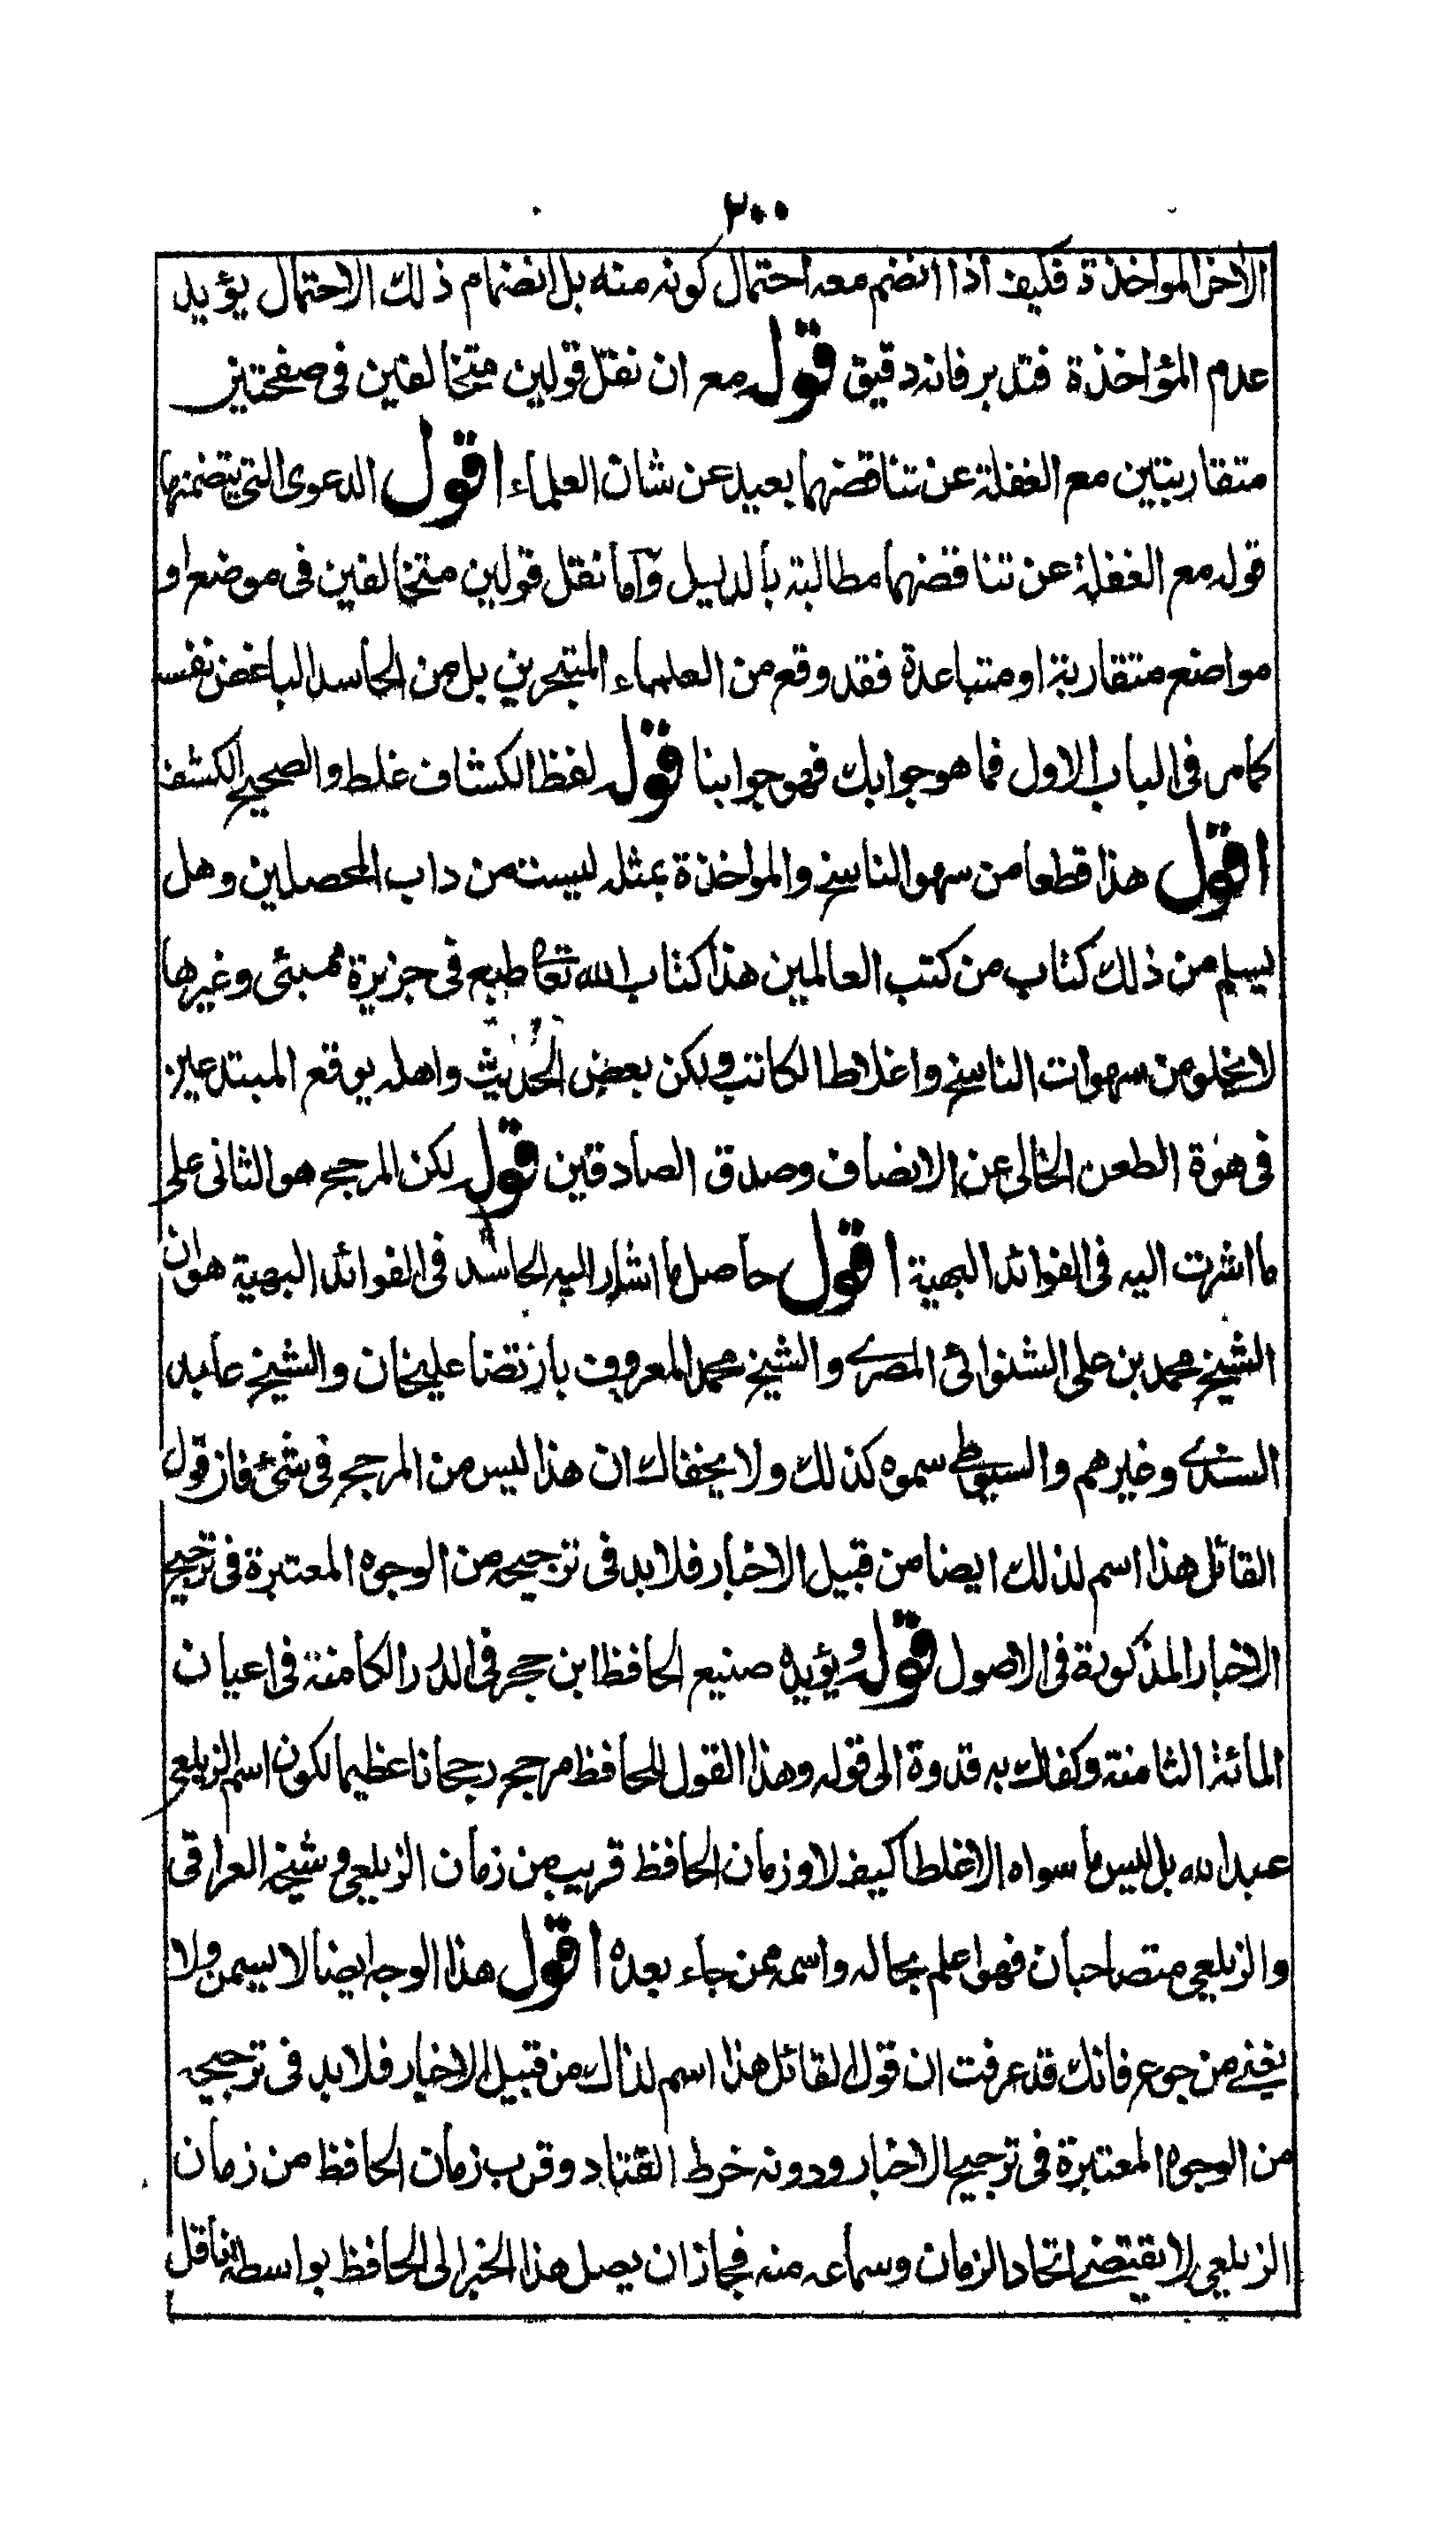 ٢٠٠
الاخر المواخذة فكيف اذا انضم معه احتمال كونه منه بل انضمام ذلك الاحتمال يؤيد
عدم المؤاخذة فتدبر فانه دقيق قوله مع ان نقل قولين متخالفين فى صفحتين
متقاربتين مع الغفلة عن تناقضهما بعيد عن شان العلماء اقول الدعوى التى يتضمنها
قوله مع الغفلة عن تناقضهما مطالبة بالدليل واما نقل قولين متخالفين فى موضع او
مواضع متقاربة او متباعدة فقد وقع من العلماء المتبحرين بل من الحاسد الباغض نفسه
كما مر فى الباب الاول فما هو جوابك فهو جوابنا قوله لفظ الكشاف غلط والصحيح الكشف
اقول هذا قطعا من سهو الناسخ والمواخذة بمثله ليست من داب المحصلين وهل
يسلم من ذلك كتاب من كتب العالمين هذا كتاب الله تعالى طبع فى جزيرة ممبئى وغيرها
لا يخلو من سهوات الناسخ واغلاط الكاتب ولكن بعض الحديث واهله يوقع المبتدعين
فى هوة الطعن الخالى عن الانصاف وصدق الصادقين قوله لكن المرجح هو الثانى على
ما اشرت اليه فى الفوائد البهية اقول حاصل ما اشار اليه الحاسد فى الفوائد البهية هو ان
الشيخ محمد بن على الشنوائى المصرى والشيخ محمد المعروف بارتضا عليخان والشيخ عابد
السندى وغيرهم والسيوطى سموه كذلك ولا يخفاك ان هذا ليس من المرجح فى شئ فان قول
القائل هذا اسم لذلك ايضا من قبيل الاخبار فلا بد فى ترجيحه من الوجوه المعتبرة فى ترجيح
الاخبار المذكورة فى الاصول قوله ويؤيده صنيع الحافظ ابن حجر فى الدرر الكامنة فى اعيان
المائة الثامنة وكفاك به قدوة الى قوله وهذا القول للحافظ مرجح رجحانا عظيما لكون اسم الزيلعى
عبد الله بل ليس ما سواه الا غلطا كيف لا وزمان الحافظ قريب من زمان الزيلعى وشيخه العراقى
والزيلعى متصاحبان فهو اعلم بحاله واسمه ممن جاء بعده اقول هذا الوجه ايضا لا يسمن ولا
يغنى من جوع فانك قد عرفت ان قول القائل هذا اسم لذاك من قبيل الاخبار فلا بد فى ترجيحه
من الوجوه المعتبرة فى ترجيح الاخبار ودونه خرط القتاد وقرب زمان الحافظ من زمان
الزيلعى لا يقتضى اتحاد الزمان وسماعه منه فجاز ان يصل هذا الخبر الى الحافظ بواسطة ناقل